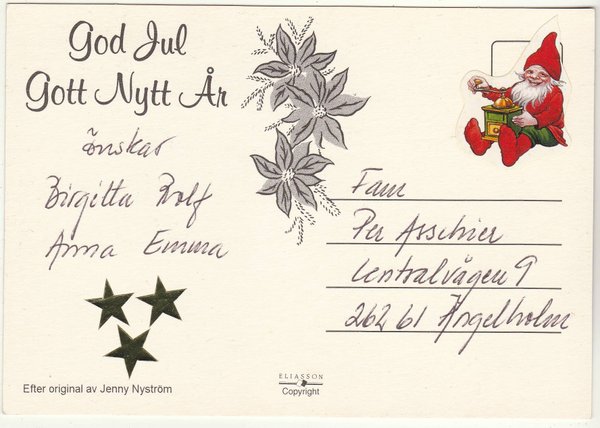 God Jul
Gott Nytt År
önskar
Birgitta Rolf
Anna Emma
Fam
Per Asschier
Centralvägen 9
262 61 Ängelholm
Efter original av Jenny Nyström
ELIASSON
Copyright